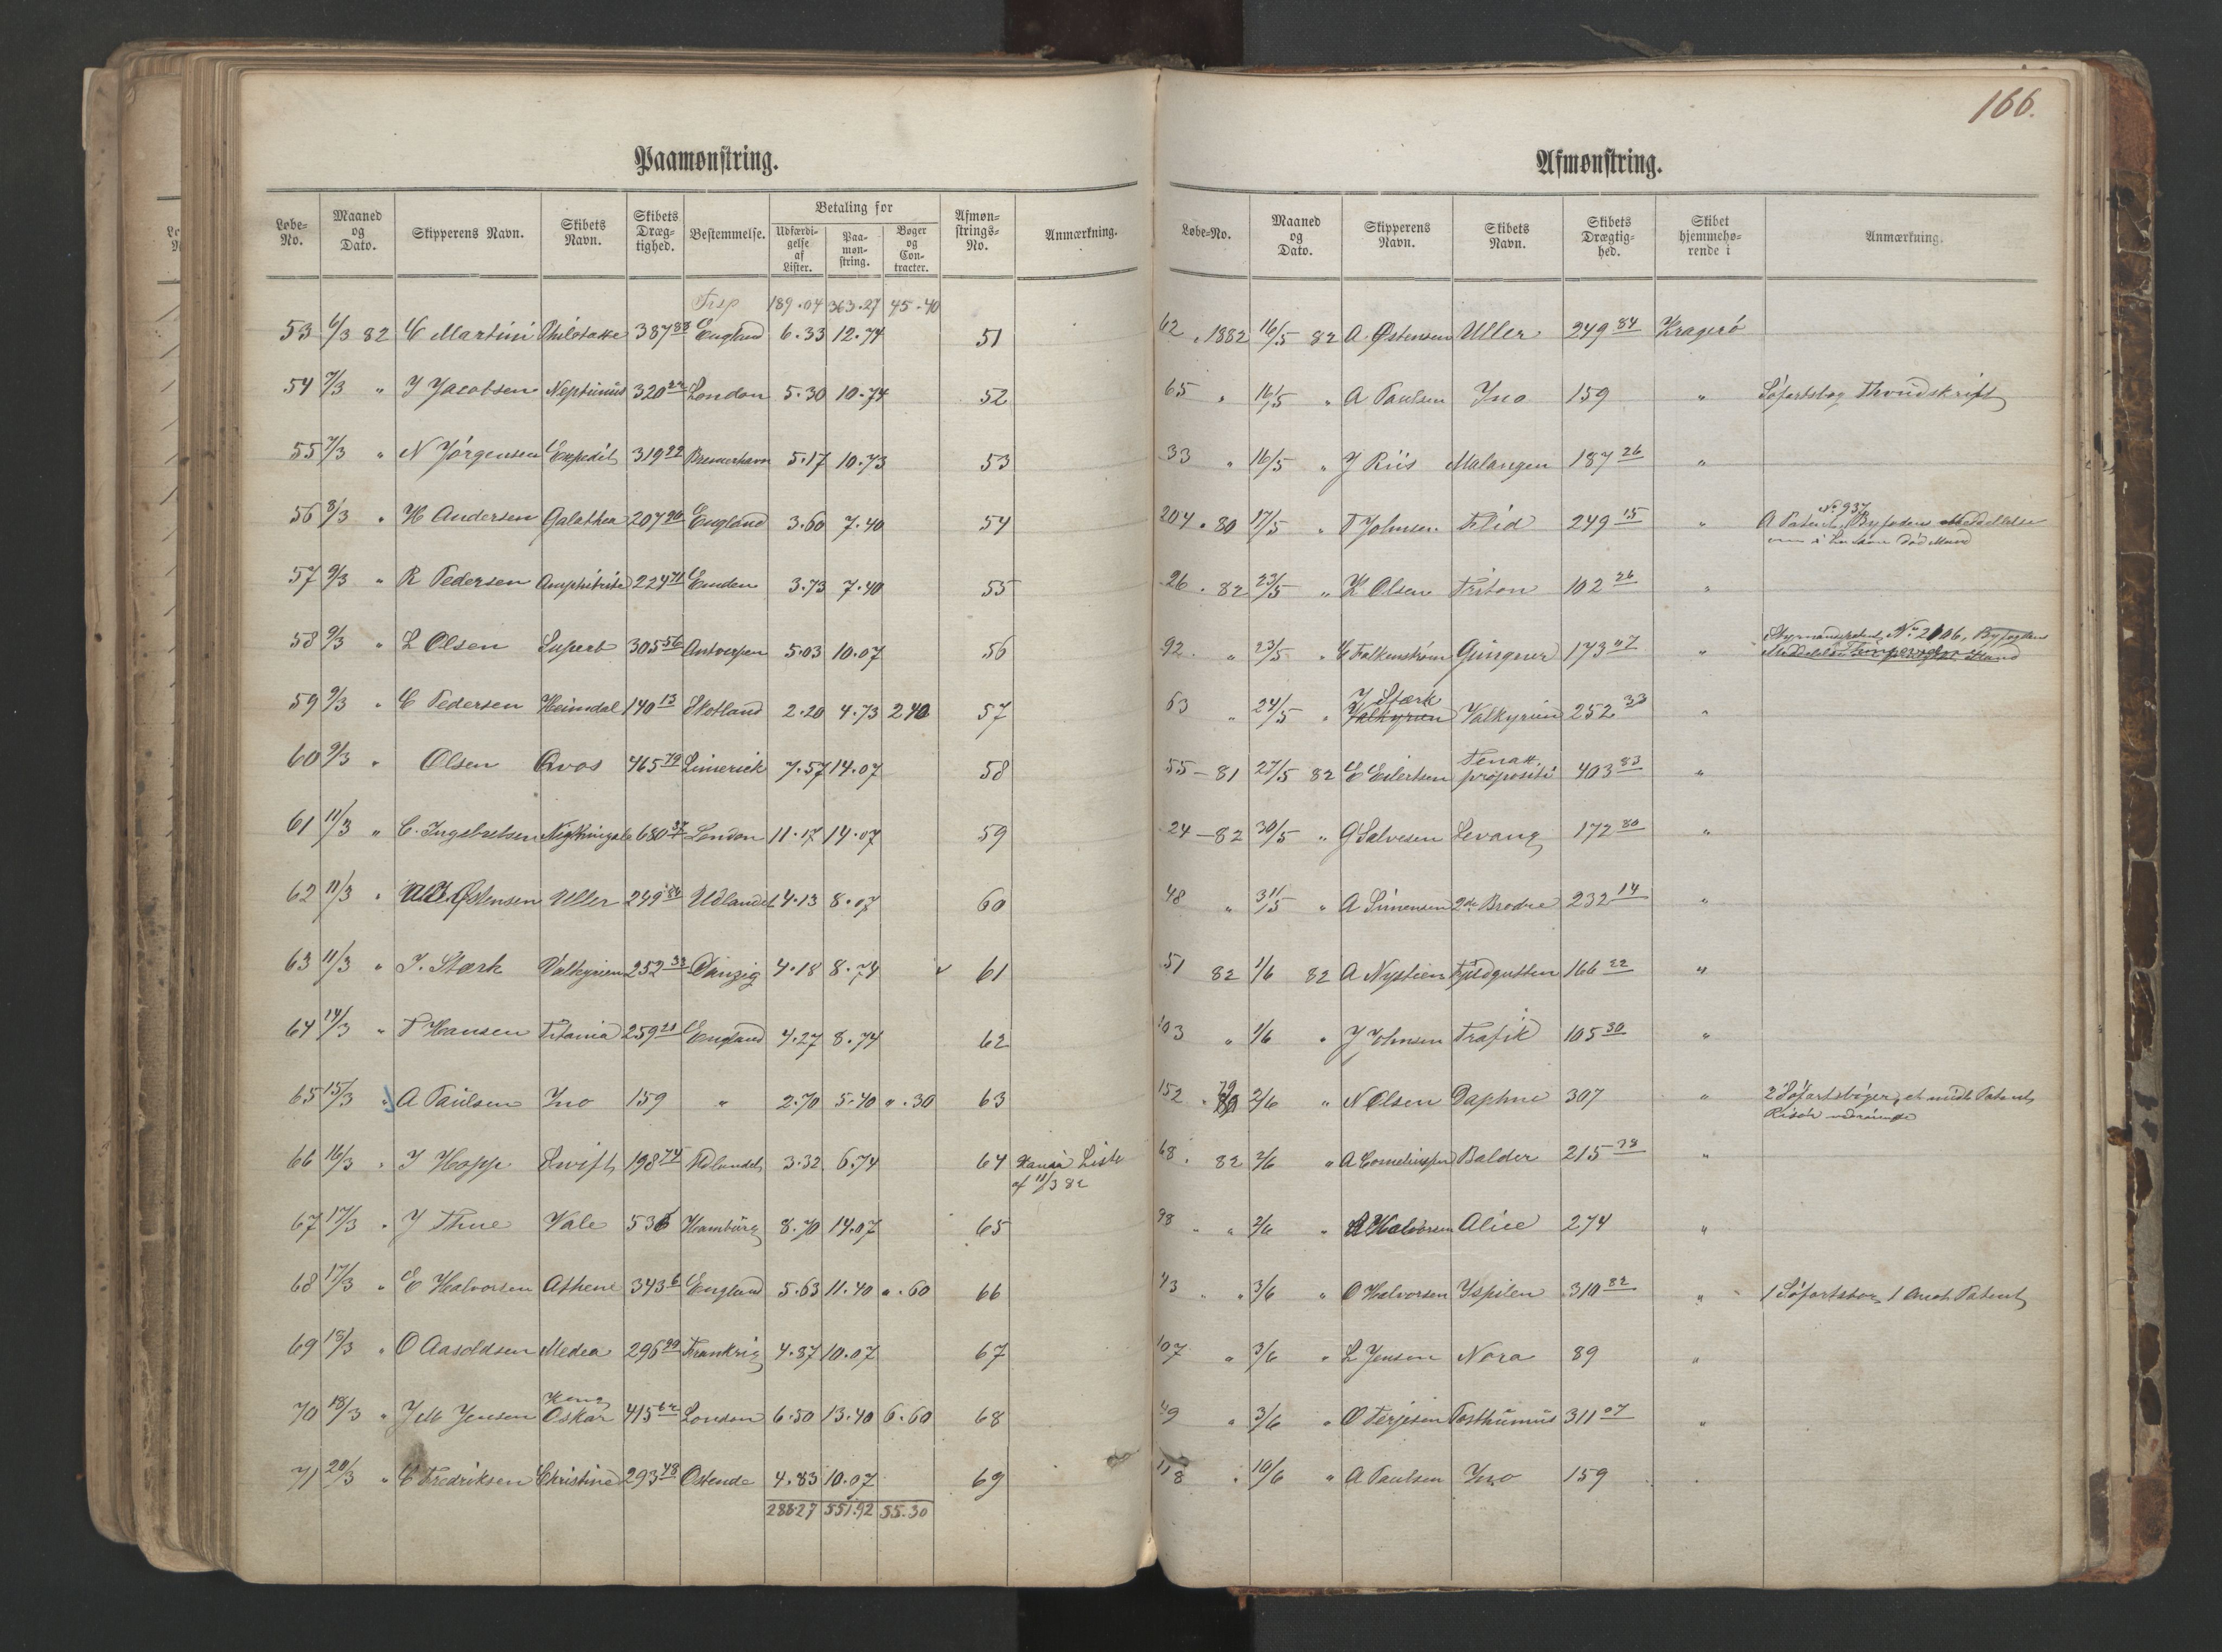 166.
Paamønstring.
Løbe-No. Maaned og Dato. Skipperens Navn. Skibets Navn. Skibets Dræg-tighed. Bestemmelse. Betaling for Udfærdi-gelse af Lister. Paa-møn-string. Bøger og Con-tracter. Afmøn-strings-No. Anmærkning.
Trsp 189.04 363.27 45.40
53 6/3 82 C Martini 387 83 England 6.33 12.74 51
54 7/3 " J Jacobsen Neptunus 320 22 London 5.30 10.74 52
55 7/3 " N Jörgensen Expedit 319 22 Bremerhavn 5.17 10.73 53
56 8/3 " H Andersen Galathea 207 90 England 3.60 7.40 54
57 9/3 " R Pedersen Amphitrite 224 71 Emden 3.73 7.40 55
58 9/3 " L Olsen Superb 305 56 Antverpen 5.03 10.07 56
59 9/3 " C Pedersen Heimdal 140 13 Skotland 2.20 4.73 2 40 57
60 9/3 " Olsen Avos 465 79 Limerick 7.57 14.07 58
61 11/3 " C. Ingebretsen 680 37 London 11.17 14.07 59
62 11/3 " Østensen Uller 249 84 Udlandet 4.13 8.07 60
63 11/3 " J. Stærk Valkyrien 252 33 Danzig 4.18 8.74 61
64 14/3 " T Hansen Titania 259 21 England 4.27 8.74 62
65 15/3 " A Paulsen Ino 159 " 2.70 5.40 ".30 63
66 16/3 " J Hopp Swift 198 74 Udlandet 3.32 6.74 64 Liste
af 11/3 82
67 17/3 " J Thue Vale 536 Hamburg 8.70 14.07 65
68 17/3 " E Halvorsen Athene 343 6 England 5.63 11.40 ".60 66
69 18/3 " O Aasoldsen Medea 296 99 Frankrig 4.87 10.07 67
70 18/3 " J M Jensen Kong Oskar 415 62 London 6.50 13.40 6.60 68
71 20/3 " C Fredriksen Christine 293 48 Ostende 4.83 10.07 69
288.27 551.92 55.30
Afmønstring.
Løbe-No. Maaned og Dato. Skipperens Navn. Skibets Navn. Skibets Drægtig-hed. Skibet hjemmehø-rende i Anmærkning.
62 . 1882 16/5 82 A. Østensen Uller 249 84 Kragerö
65 " 16/5 " A Paulsen Ino 159 " Söfartsbog
33 " 16/5 " J Riis Malangen 187 26 "
204 . 80 17/5 " T Johnsen Flid 249 15 " No 937
A Patent, Byfogdens Meddelelse
om död Mand
26 . 82 23/5 " K Olsen Triton 102 26 "
92 . " 23/5 " E Falkenstrøm Gungner 173 07 " Styrmandspatent No 2106, Byfogdens
Meddelelse Mand
63 " 24/5 " J Stærk Valkyrien Valkyrien 252 33 "
55 - 81 27/5 82 E Eilertsen Tenax propositi 403 83 "
24 - 82 30/5 " G Salvesen Levang 172 80 "
48 " 31/5 " A Simensen 2de Brodre 232 14 "
51 82 1/6 82 A Nystien Fjeldgutten 166 22 "
103 " 1/6 " J Johnsen Trafik 105 30 "
152 " 79 2/6 " N Olsen Daphne 307 " 2 Söfartsböger, et Patent
68 . 82 2/6 " A Corneliussen Balder 215 "
98 " " 2/6 " Halvorsen Alice 274 "
43 " " 3/6 " O Halvorsen Ispilen 310 82 " 1 Söfartsbog, 1 Patent
107 " 3/6 " L Jensen Nora 89 "
49 " 3/6 " O Terjesen Posthumus 311 07 "
118 " 10/6 " A Paulsen Ino 159 .